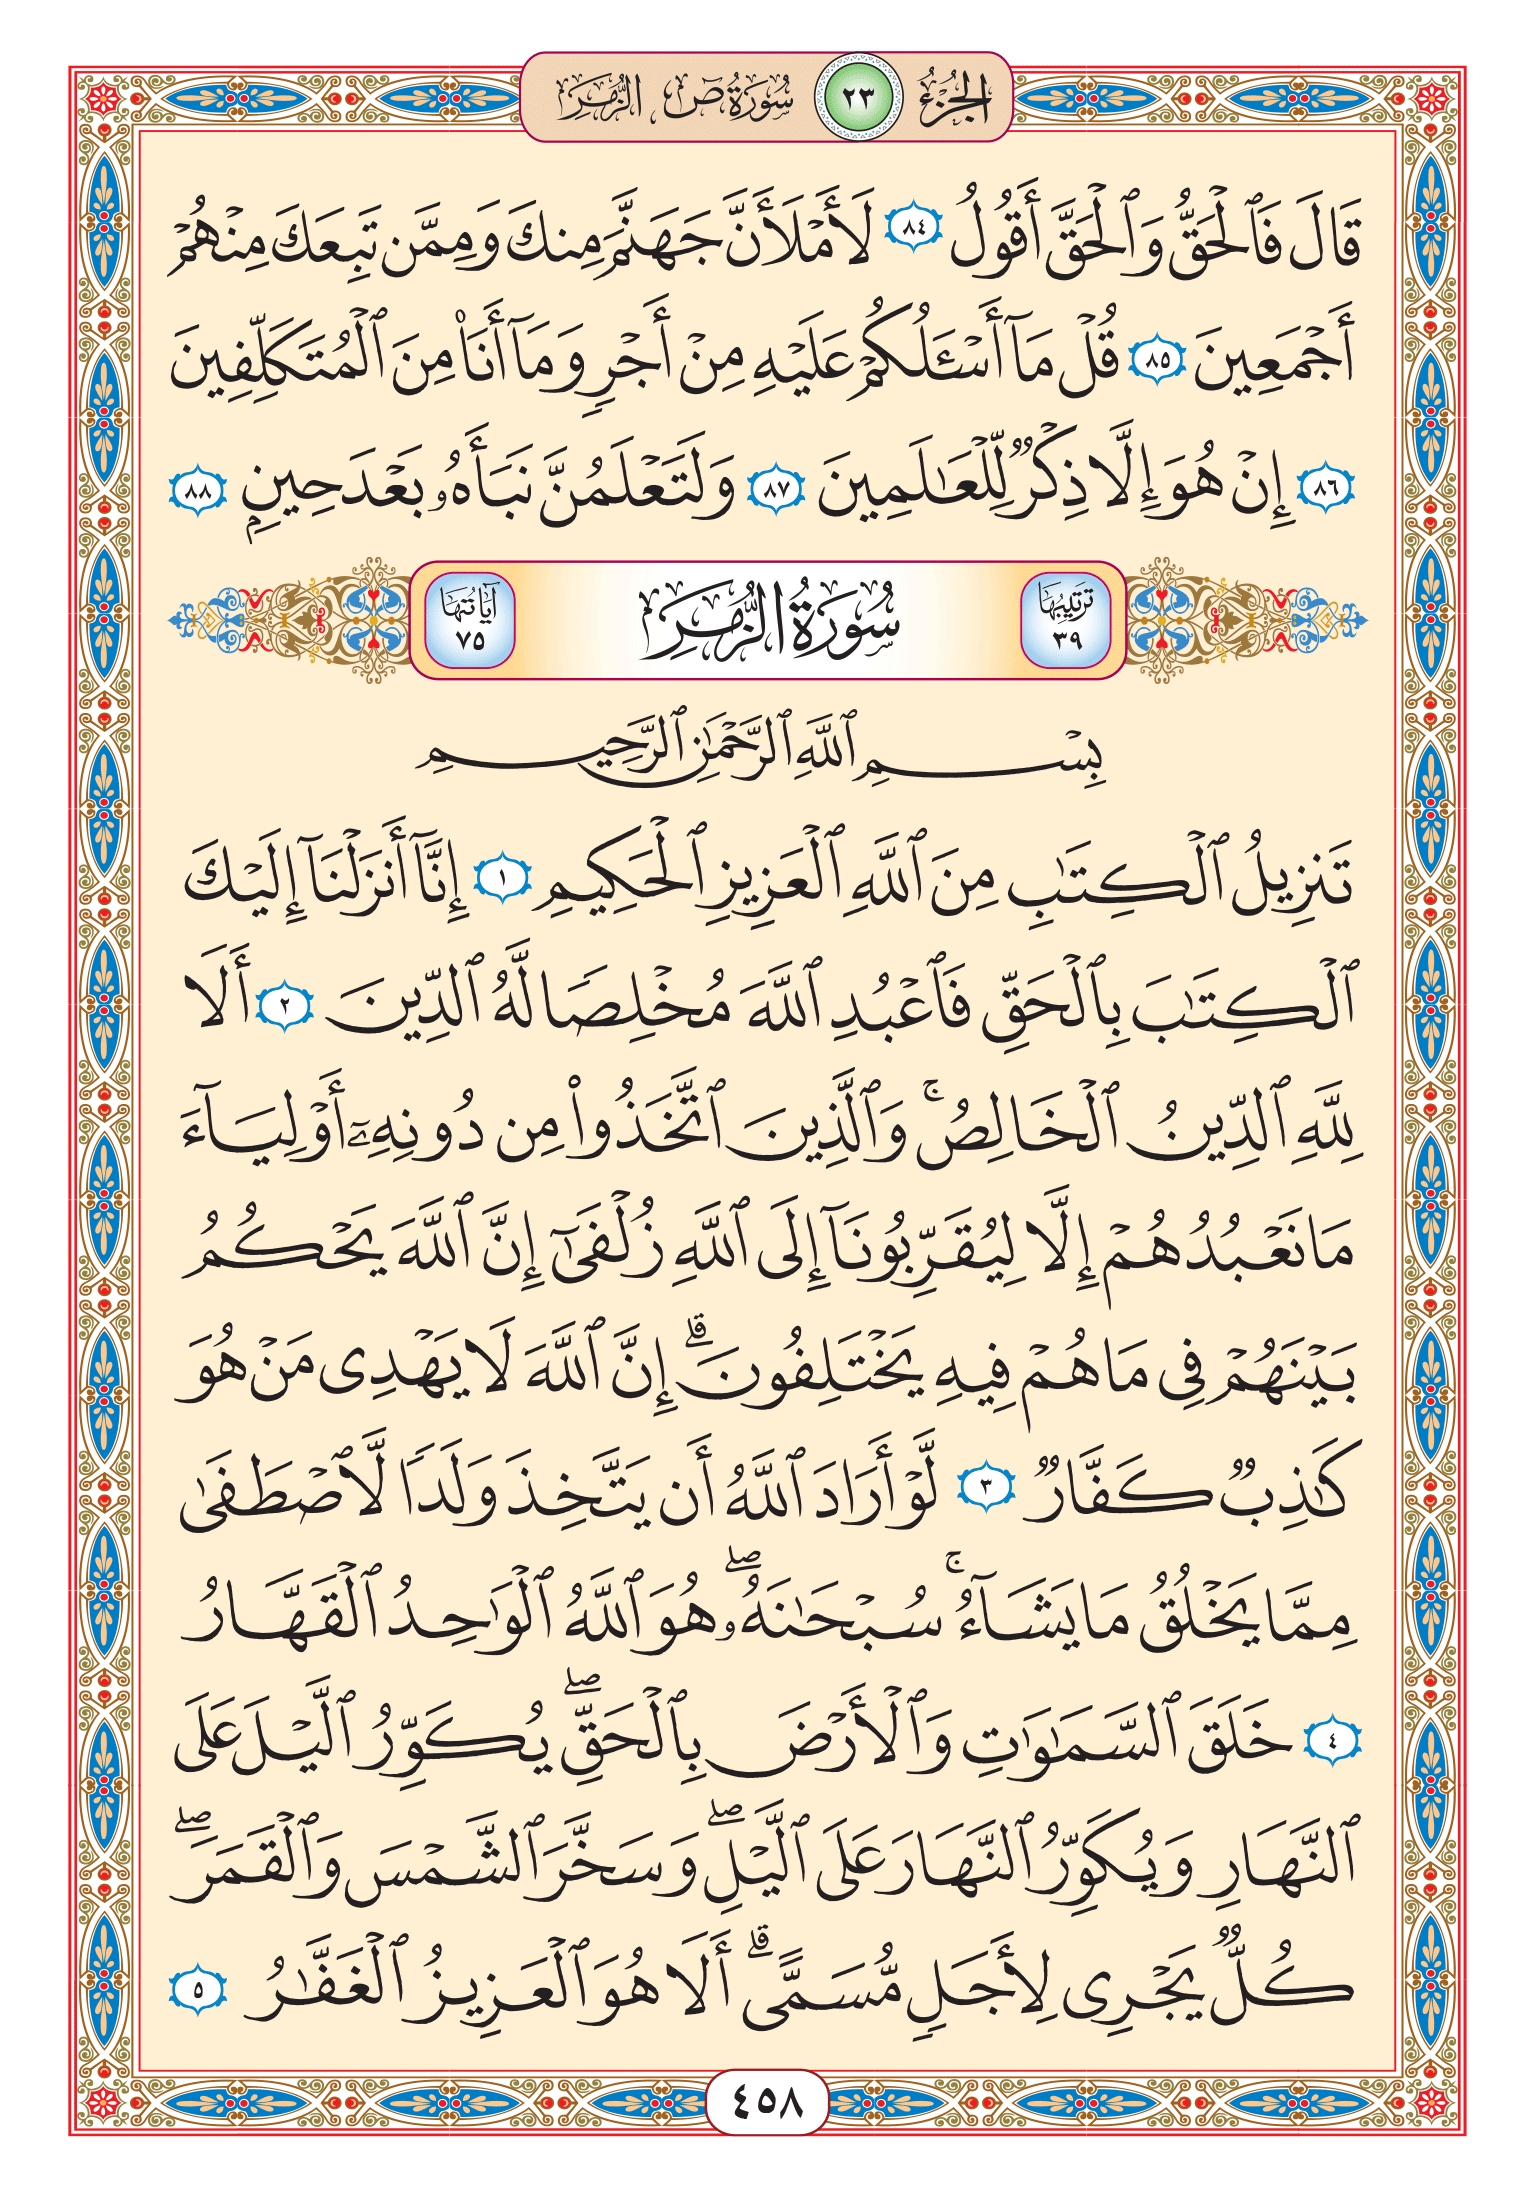 الجزء ٢٣ سورة ص الزمر
قَالَ فَٱلْحَقُّ وَٱلْحَقَّ أَقُولُ ٨٤ لَأَمْلَأَنَّ جَهَنَّمَ مِنكَ وَمِمَّن تَبِعَكَ مِنْهُمْ
أَجْمَعِينَ ٨٥ قُلْ مَآ أَسْـَٔلُكُمْ عَلَيْهِ مِنْ أَجْرٍ وَمَآ أَنَا۠ مِنَ ٱلْمُتَكَلِّفِينَ
٨٦ إِنْ هُوَ إِلَّا ذِكْرٌ لِّلْعَـٰلَمِينَ ٨٧ وَلَتَعْلَمُنَّ نَبَأَهُۥ بَعْدَ حِينٍۭ ٨٨
ترتيبها ٣٩ سُورَةُ الزُّمَرِ آيَاتُهَا ٧٥
بِسْمِ ٱللَّهِ ٱلرَّحْمَـٰنِ ٱلرَّحِيمِ
تَنزِيلُ ٱلْكِتَـٰبِ مِنَ ٱللَّهِ ٱلْعَزِيزِ ٱلْحَكِيمِ ١ إِنَّآ أَنزَلْنَآ إِلَيْكَ
ٱلْكِتَـٰبَ بِٱلْحَقِّ فَٱعْبُدِ ٱللَّهَ مُخْلِصًا لَّهُ ٱلدِّينَ ٢ أَلَا
لِلَّهِ ٱلدِّينُ ٱلْخَالِصُ ۚ وَٱلَّذِينَ ٱتَّخَذُوا۟ مِن دُونِهِۦٓ أَوْلِيَآءَ
مَا نَعْبُدُهُمْ إِلَّا لِيُقَرِّبُونَآ إِلَى ٱللَّهِ زُلْفَىٰٓ إِنَّ ٱللَّهَ يَحْكُمُ
بَيْنَهُمْ فِى مَا هُمْ فِيهِ يَخْتَلِفُونَ ۗ إِنَّ ٱللَّهَ لَا يَهْدِى مَنْ هُوَ
كَـٰذِبٌ كَفَّارٌ ٣ لَّوْ أَرَادَ ٱللَّهُ أَن يَتَّخِذَ وَلَدًا لَّٱصْطَفَىٰ
مِمَّا يَخْلُقُ مَا يَشَآءُ ۚ سُبْحَـٰنَهُۥ ۖ هُوَ ٱللَّهُ ٱلْوَٰحِدُ ٱلْقَهَّارُ
٤ خَلَقَ ٱلسَّمَـٰوَٰتِ وَٱلْأَرْضَ بِٱلْحَقِّ ۖ يُكَوِّرُ ٱلَّيْلَ عَلَى
ٱلنَّهَارِ وَيُكَوِّرُ ٱلنَّهَارَ عَلَى ٱلَّيْلِ ۖ وَسَخَّرَ ٱلشَّمْسَ وَٱلْقَمَرَ ۖ
كُلٌّ يَجْرِى لِأَجَلٍ مُّسَمًّى ۗ أَلَا هُوَ ٱلْعَزِيزُ ٱلْغَفَّـٰرُ ٥
٤٥٨